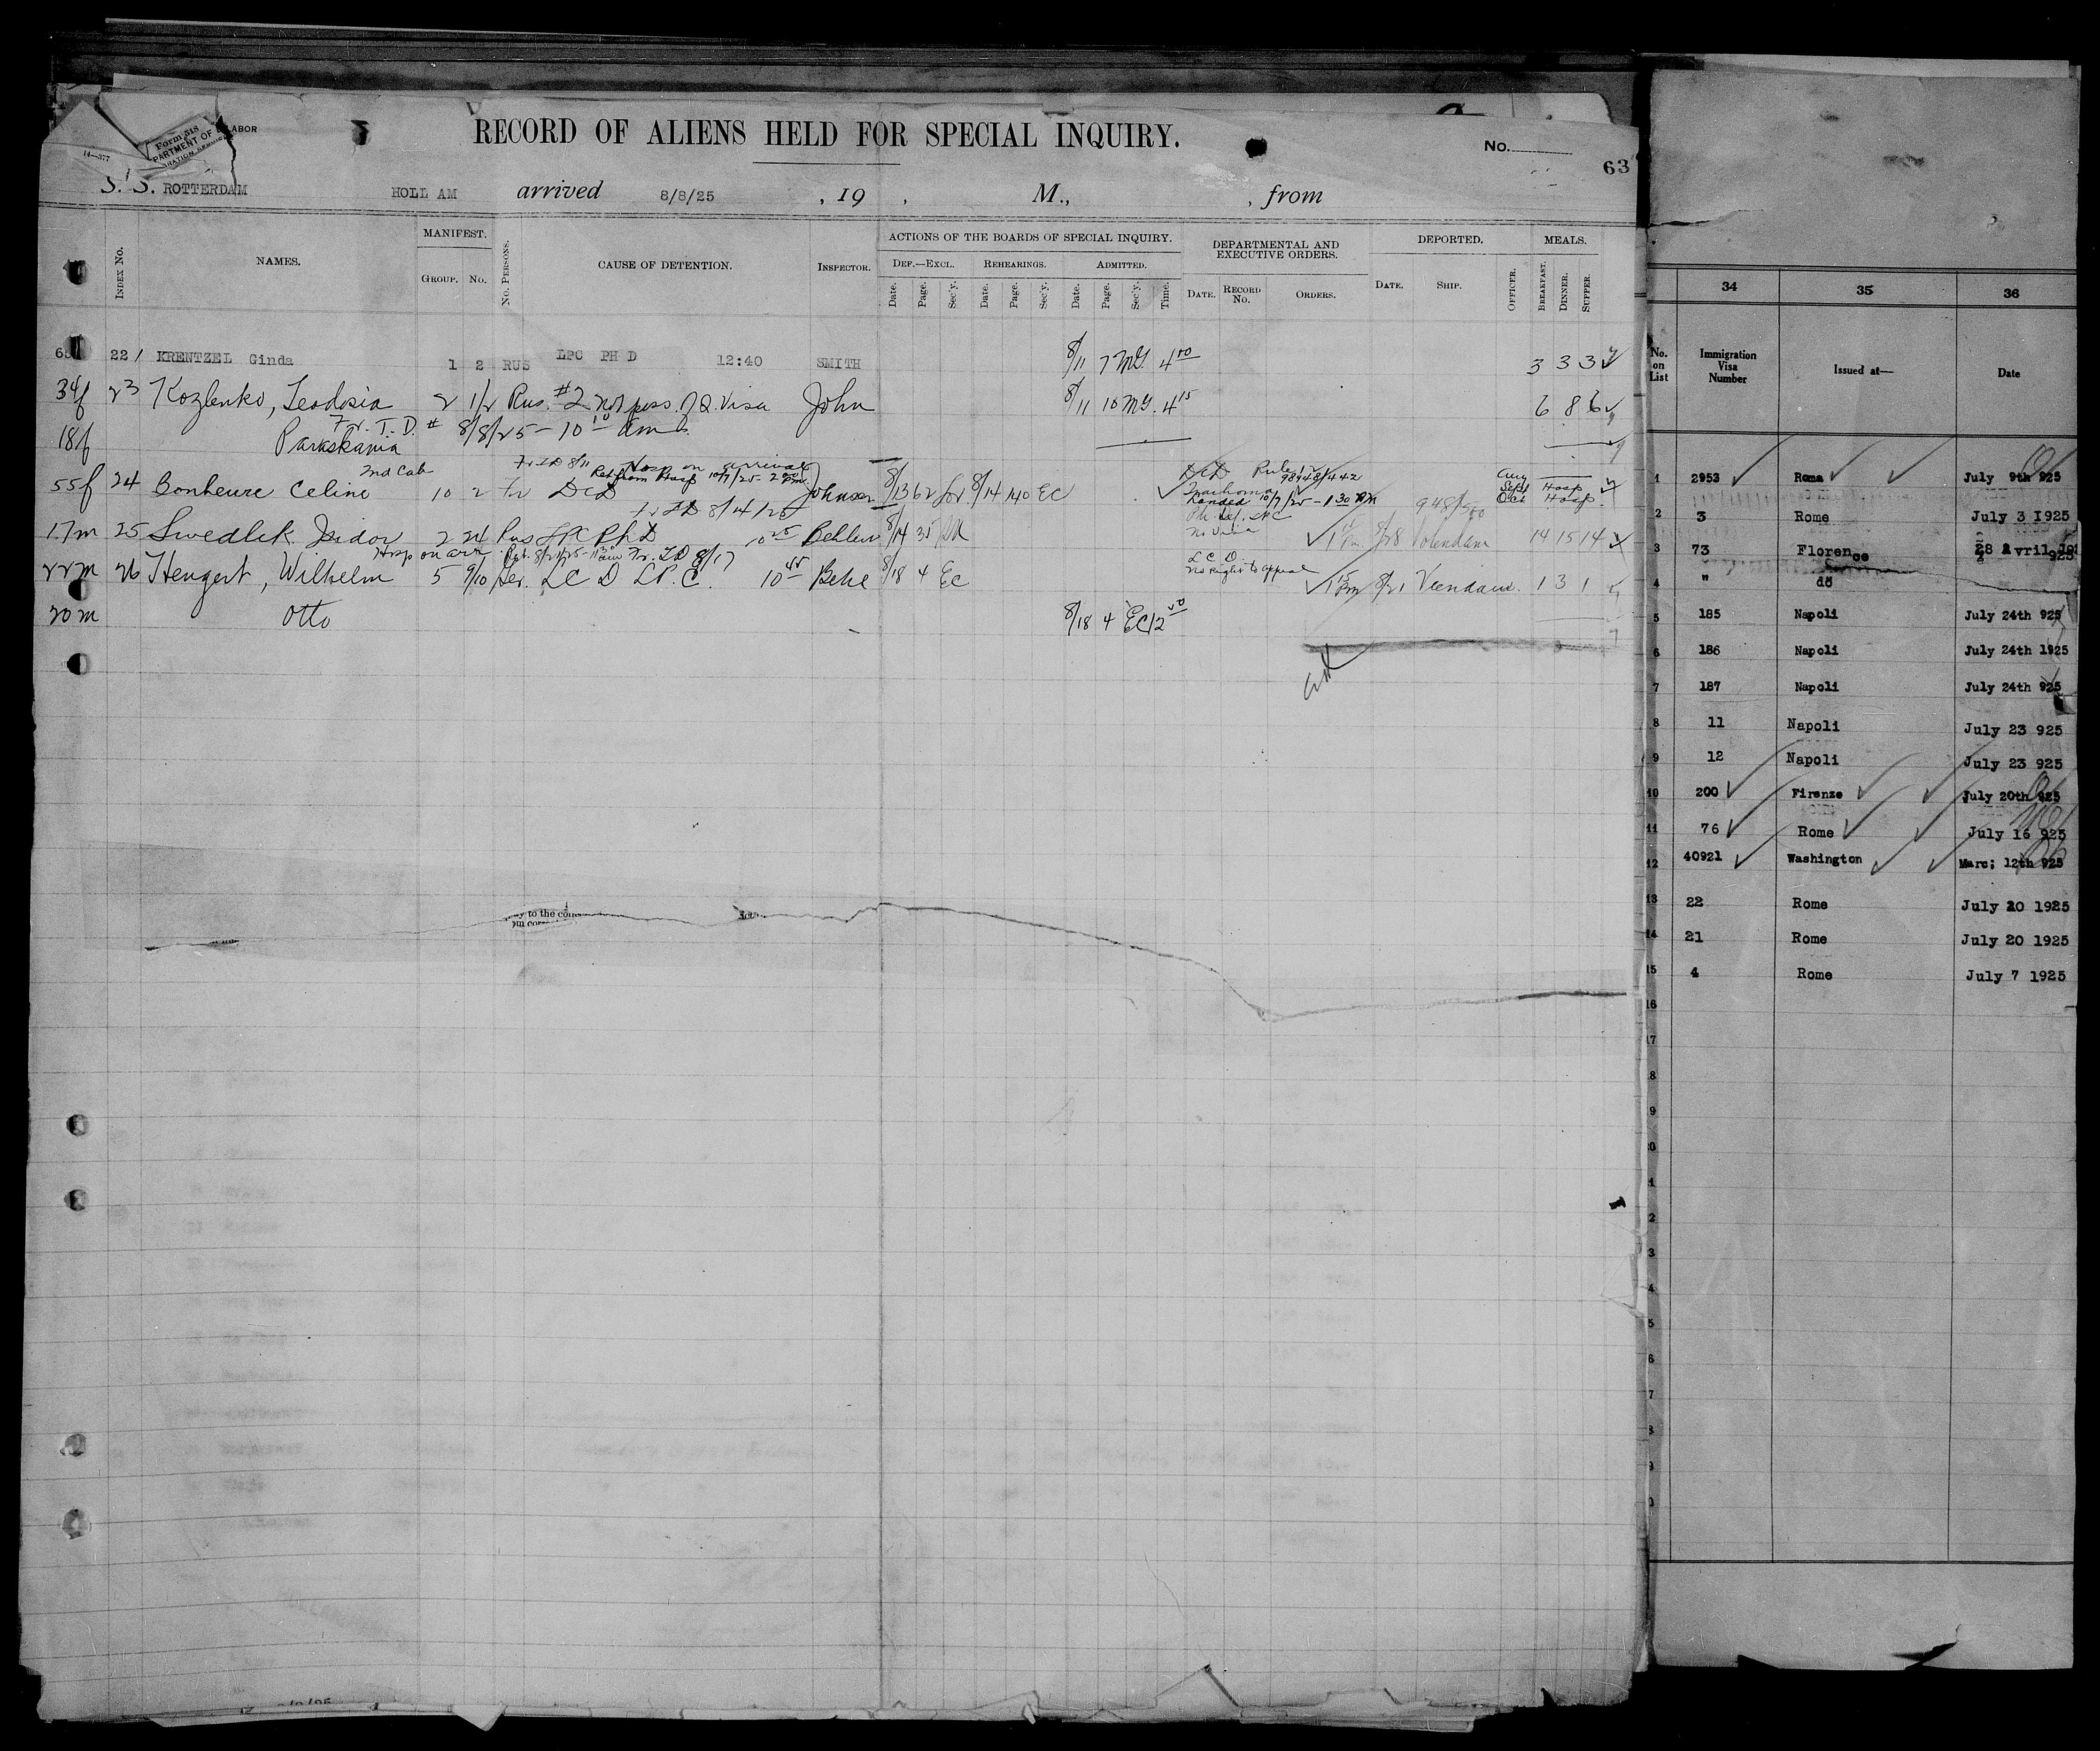 Form 518
PARTMENT OF LABOR
14—377
RECORD OF ALIENS HELD FOR SPECIAL INQUIRY.
No.
63
S. S. ROTTERDAM HOLL AM arrived 8/8/25 , 19 , M., , from
INDEX No. NAMES. MANIFEST. GROUP. No. No. PERSONS. CAUSE OF DETENTION. INSPECTOR.
ACTIONS OF THE BOARDS OF SPECIAL INQUIRY.
DEF.—EXCL. REHEARINGS. ADMITTED.
Date. Page. Sec'y. Date. Page. Sec'y. Date. Page. Sec'y. Time.
DEPARTMENTAL AND EXECUTIVE ORDERS.
DATE. RECORD No. ORDERS.
DEPORTED.
DATE. SHIP. OFFICER.
MEALS.
BREAKFAST. DINNER. SUPPER.
22 / KRENTZEL Ginda 1 2 RUS LPC PH D 12:40 SMITH 8/11 7 MG 4 00 3 3 3
34f 23 Kozlenko, Teodosia 2 1/2 Rus. #2 not poss. Q. Visa John 8/11 10 MG. 4 15 6 8 6
Tr. T. D. # 8/8/25 - 10 10 am
18f Paraskania
2nd Cab Tr TD 8/11 Hosp on arrival
Ret from Hosp 10/9/25 - 2 00 pm
55f 24 Bonheure Celine 10 2 Fr D C D Johnson 8/13 62 8/14 140 EC
Tr TD 8/14/25
DCD Rule 17
98948/442
Trachoma
Landed 10/9/25 - 1 30 PM
Aug
Sept Hosp
Oct Hosp.
948/500
17m 25 Swedlik Isidor 2 24 Rus LPC PhD 10 25 8/14 35
Ph. Def. LPC
No Visa
8/28 Volendam 14 15 14
Hosp on arr. Ret. 8/21/25 - 11 am Tr. TD 8/17
22m 26 Hengert, Wilhelm 5 9/10 Ger. LC D LP. C. 10 45 8/18 4 EC
L C D.
No Right to appeal
1 15 Pm 8/21 Veendam. 1 3 1
20m Otto 8/18 4 EC 12 00
34 35 36
No. on List Immigration Visa Number Issued at— Date
1 2953 Roma July 9th 925
2 3 Rome July 3 1925
3 73 Florence
4 " dö
5 185 Napoli July 24th 925
6 186 Napoli July 24th 1925
7 187 Napoli July 24th 925
8 11 Napoli July 23 925
9 12 Napoli July 23 925
10 200 Firenze July 20th 925
11 76 Rome July 16 925
12 40921 Washington Marc; 12th 925
13 22 Rome July 20 1925
14 21 Rome July 20 1925
15 4 Rome July 7 1925
16
17
8
9
0
1
2
3
4
5
6
7
8
9
0